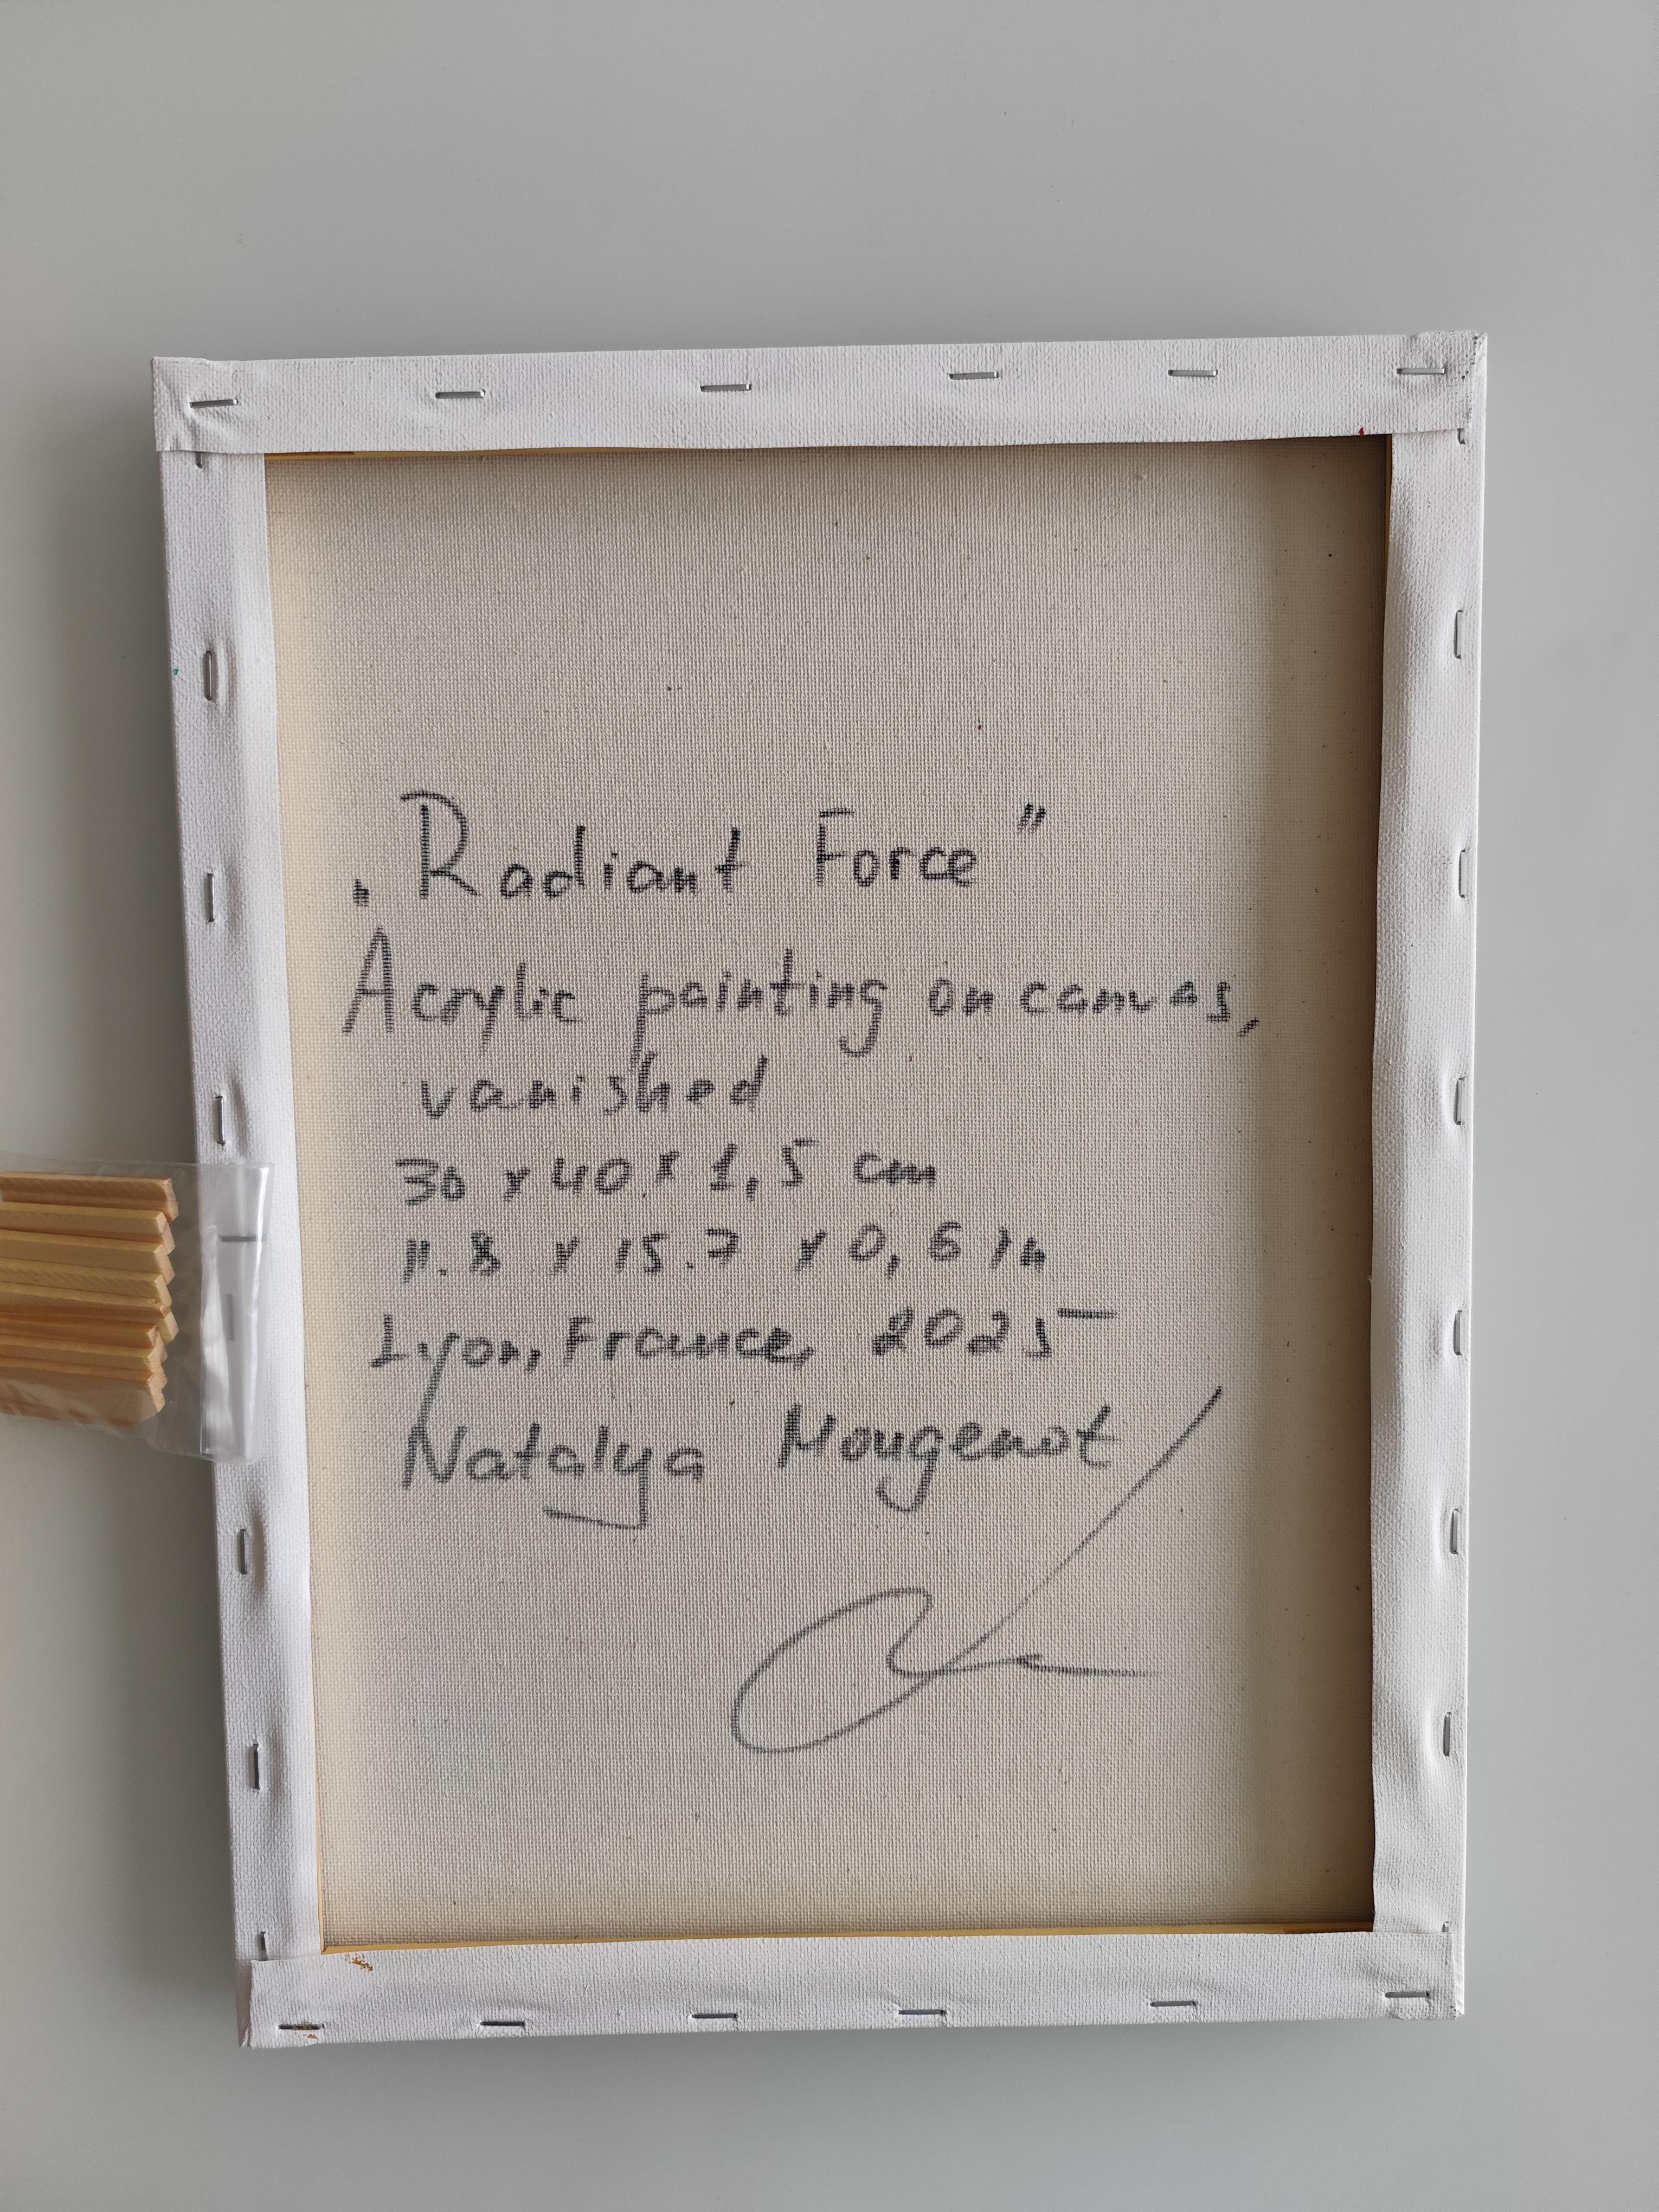 „Radiant Force”
Acrylic painting on canvas,
vanished
30 x 40 x 1,5 cm
11.8 x 15.7 x 0,6 in
Lyon, France, 2025
Natalya Mougenot